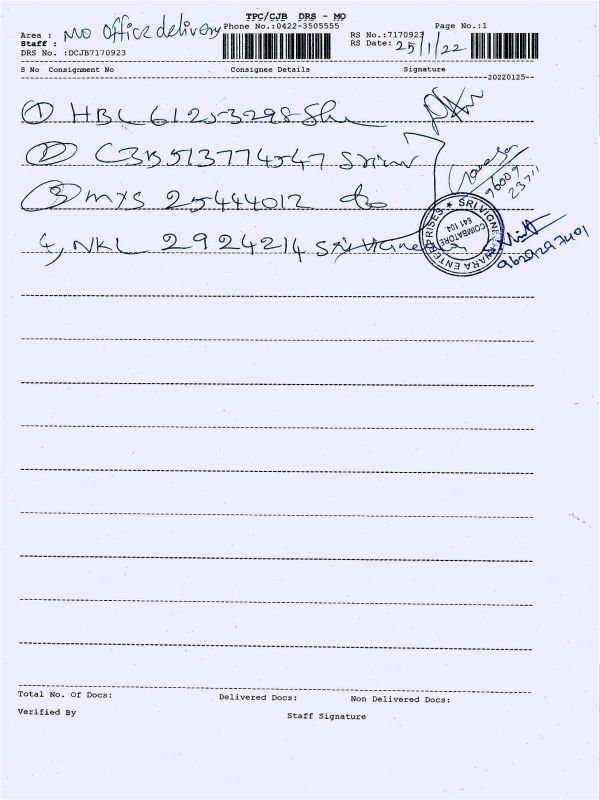 TPC/CJB DRS - MO
Area : MO office delivery
Phone No.:0422-3505555
RS No.:7170923
Page No.:1
Staff :
RS Date: 25/1/22
DRS No. :DCJB7170923
S No Consignment No Consignee Details Signature
20220125
① HBL 612533298
② CJB513774547
③ MYS 25444012 do
4, NKL 2924214
96009
23711
SRI VIGNESHWARA ENTERPRISES
COIMBATORE
641 104.
9629297401
Total No. Of Docs: Delivered Docs: Non Delivered Docs:
Verified By
Staff Signature